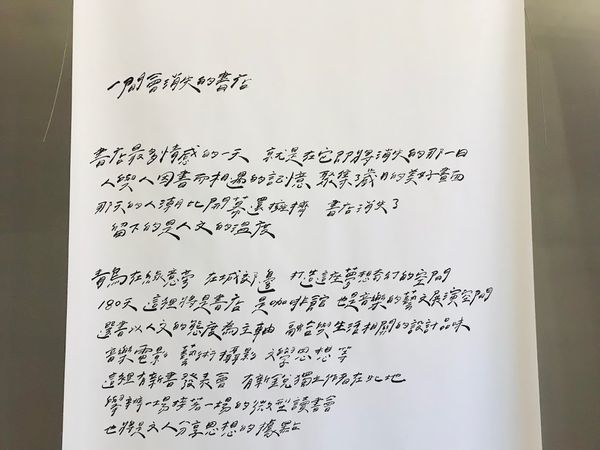 一間會消失的書店
書店最多情感的一天 就是在它即將消失的那一日
人與人因書而相遇的記憶 聚集了歲月的美好畫面
那天的人潮比開幕還擁擠 書店消失了
留下的是人文的溫度
青鳥在綠意旁 在城郭邊 打造這座夢想奇幻的空間
180天 這裡將是書店 是咖啡館 也是音樂的藝文展演空間
選書以人文的態度為主軸 融合與生活相關的設計品味
音樂電影 藝術攝影 文學思想等
這裡有新書發表會 有新銳獨立作者在此地
舉辦一場接著一場的微型讀書會
也將是文人分享思想的據點